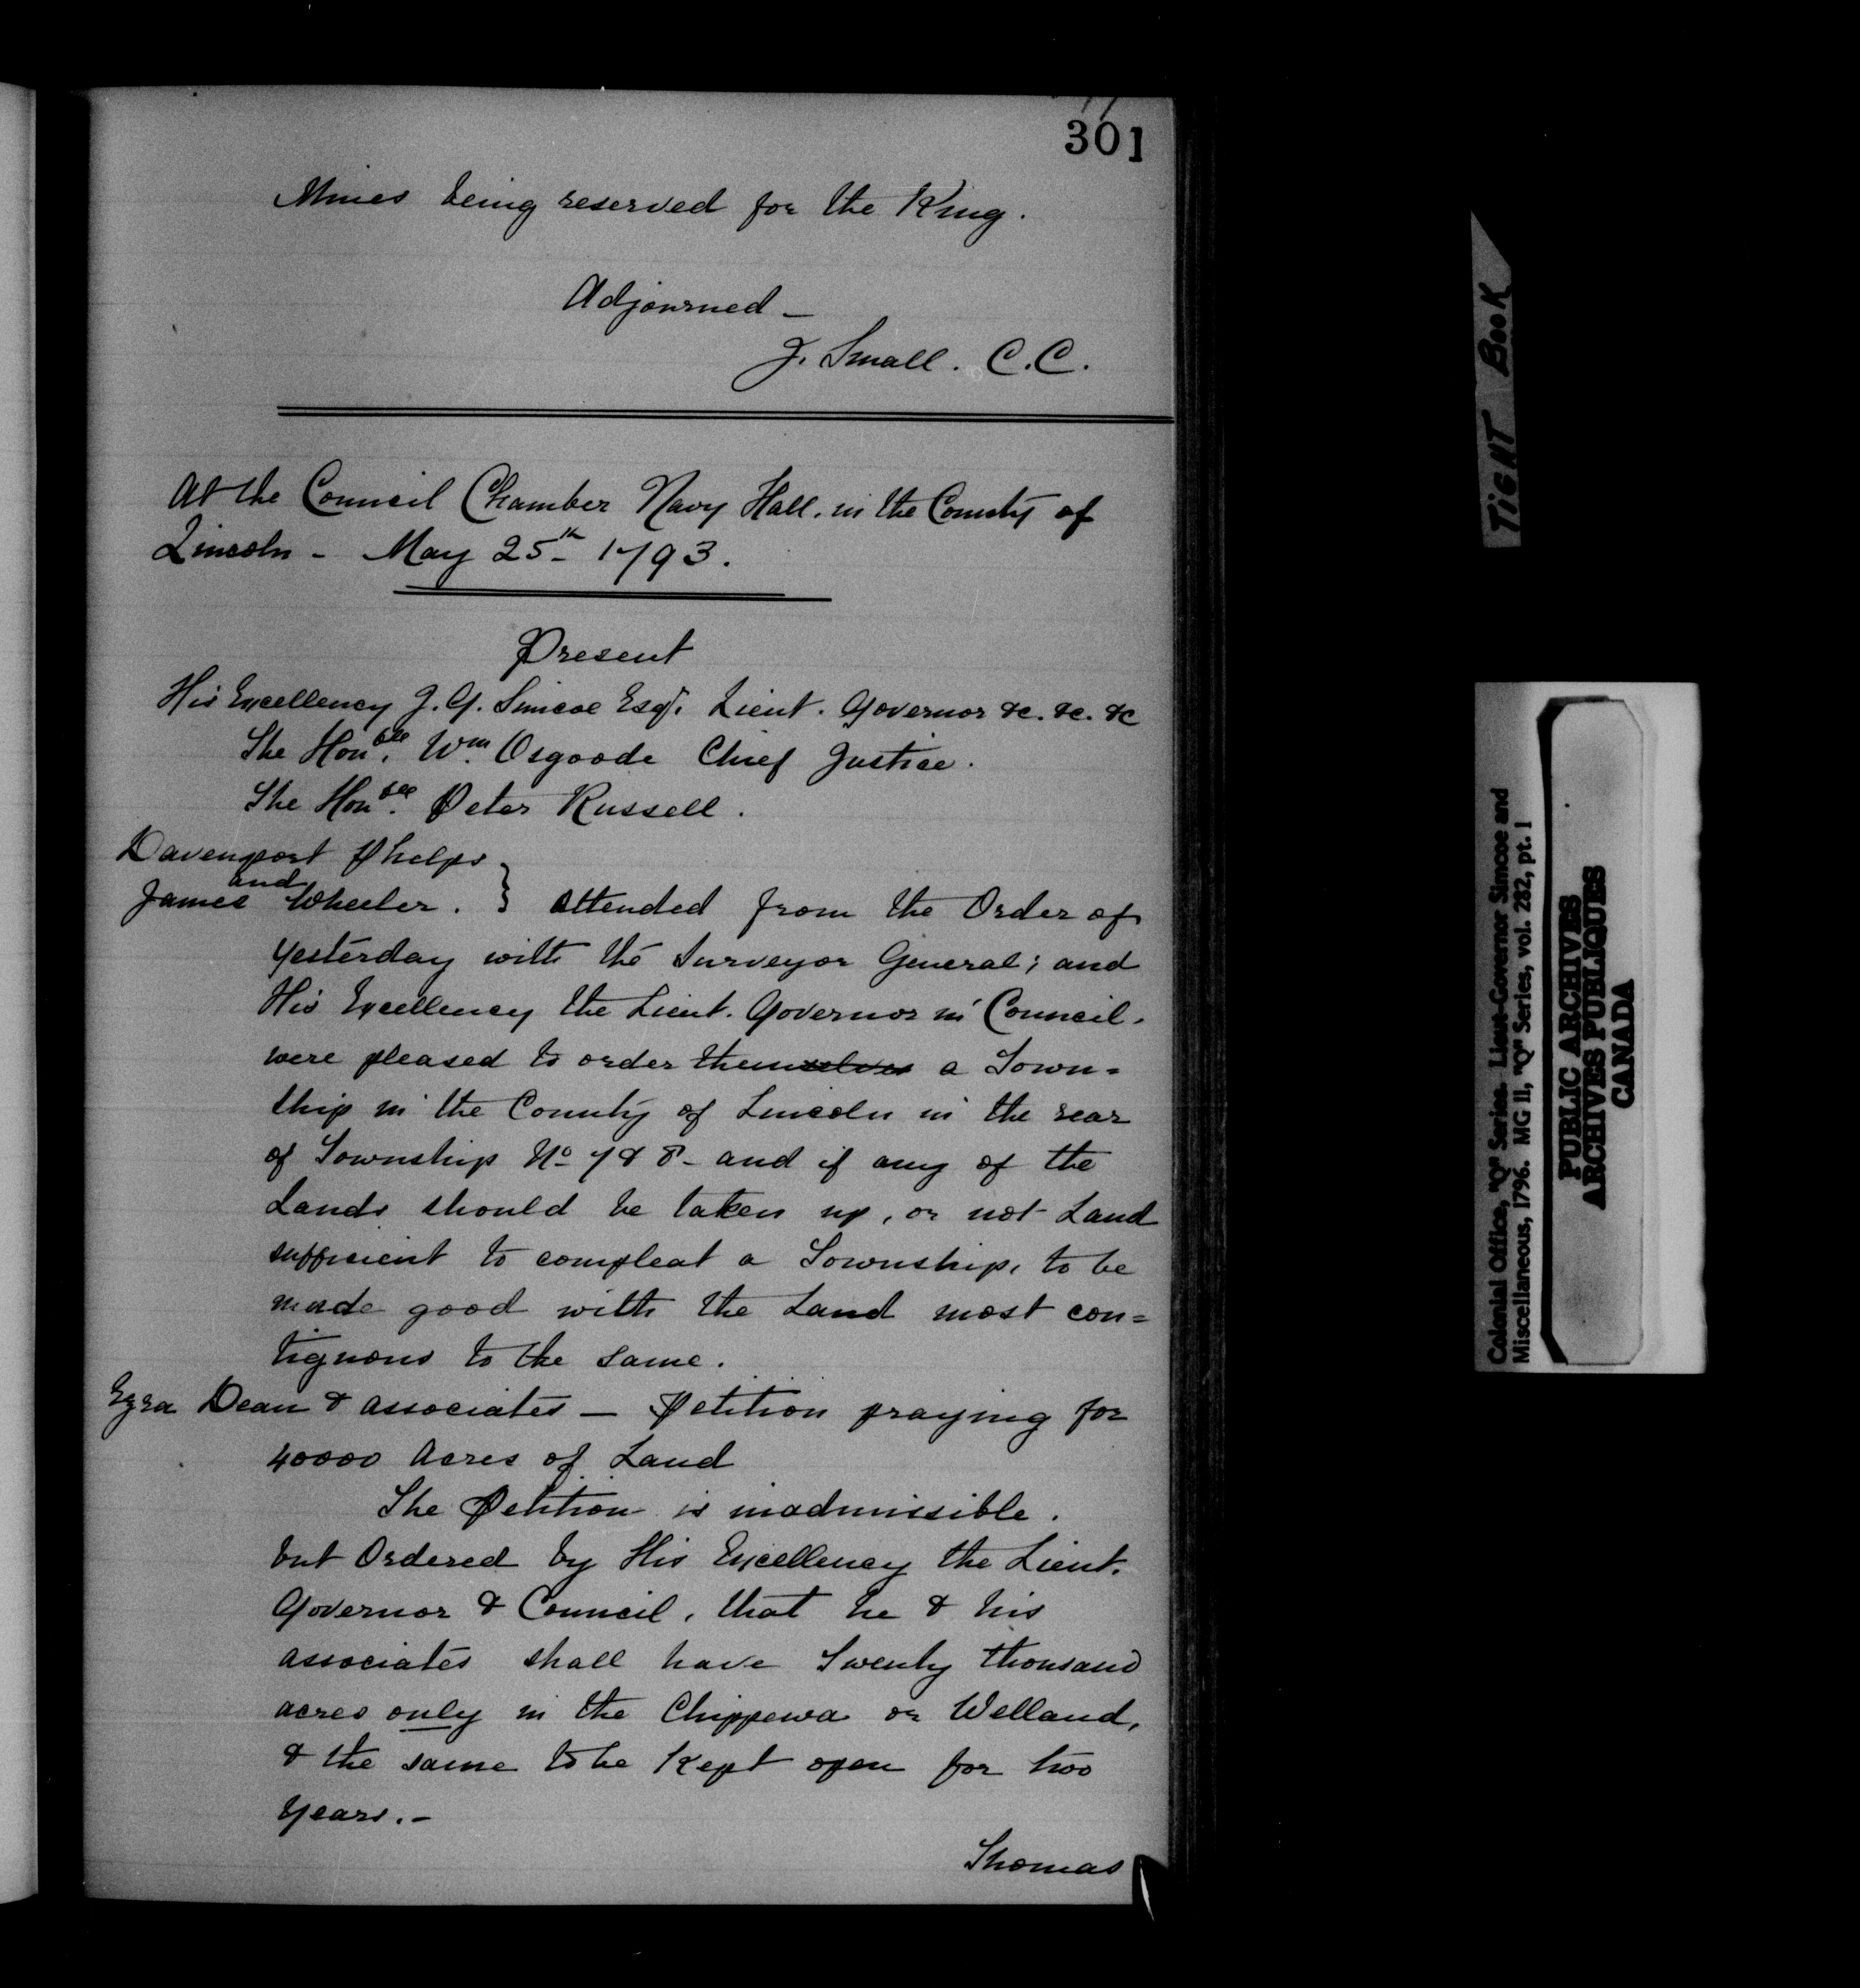 301
Mines being reserved for the King.
Adjourned –
J. Small. C.C.
At the Council Chamber Navy Hall. in the County of
Lincoln – May 25th 1793.
Present
His Excellency J. G. Simcoe Esqr. Lieut. Governor &c. &c. &c
The Honble. Wm. Osgoode Chief Justice.
The Honble. Peter Russell.
Davenport Phelps
and
James Wheeler. } attended from the Order of
yesterday with the Surveyor General; and
His Excellency the Lieut. Governor in Council.
were pleased to order themselves a Town=
ship in the County of Lincoln in the rear
of Township No 7 & 8 – and if any of the
Lands should be taken up, or not Land
sufficient to compleat a Township, to be
made good with the Land most con=
tiguous to the same.
Ezra Dean & associates – Petition praying for
40000 Acres of Land
The Petition is inadmissible.
but Ordered by His Excellency the Lieut.
Governor & Council, that he & his
associates shall have Twenty thousand
acres only in the Chippewa or Welland,
& the same to be kept open for two
years. –
Thomas
TIGHT BOOK
Colonial Office, "Q" Series. Lieut-Governor Simcoe and
Miscellaneous, 1796. MG 11, "Q" Series, vol. 282, pt. 1
PUBLIC ARCHIVES
ARCHIVES PUBLIQUES
CANADA